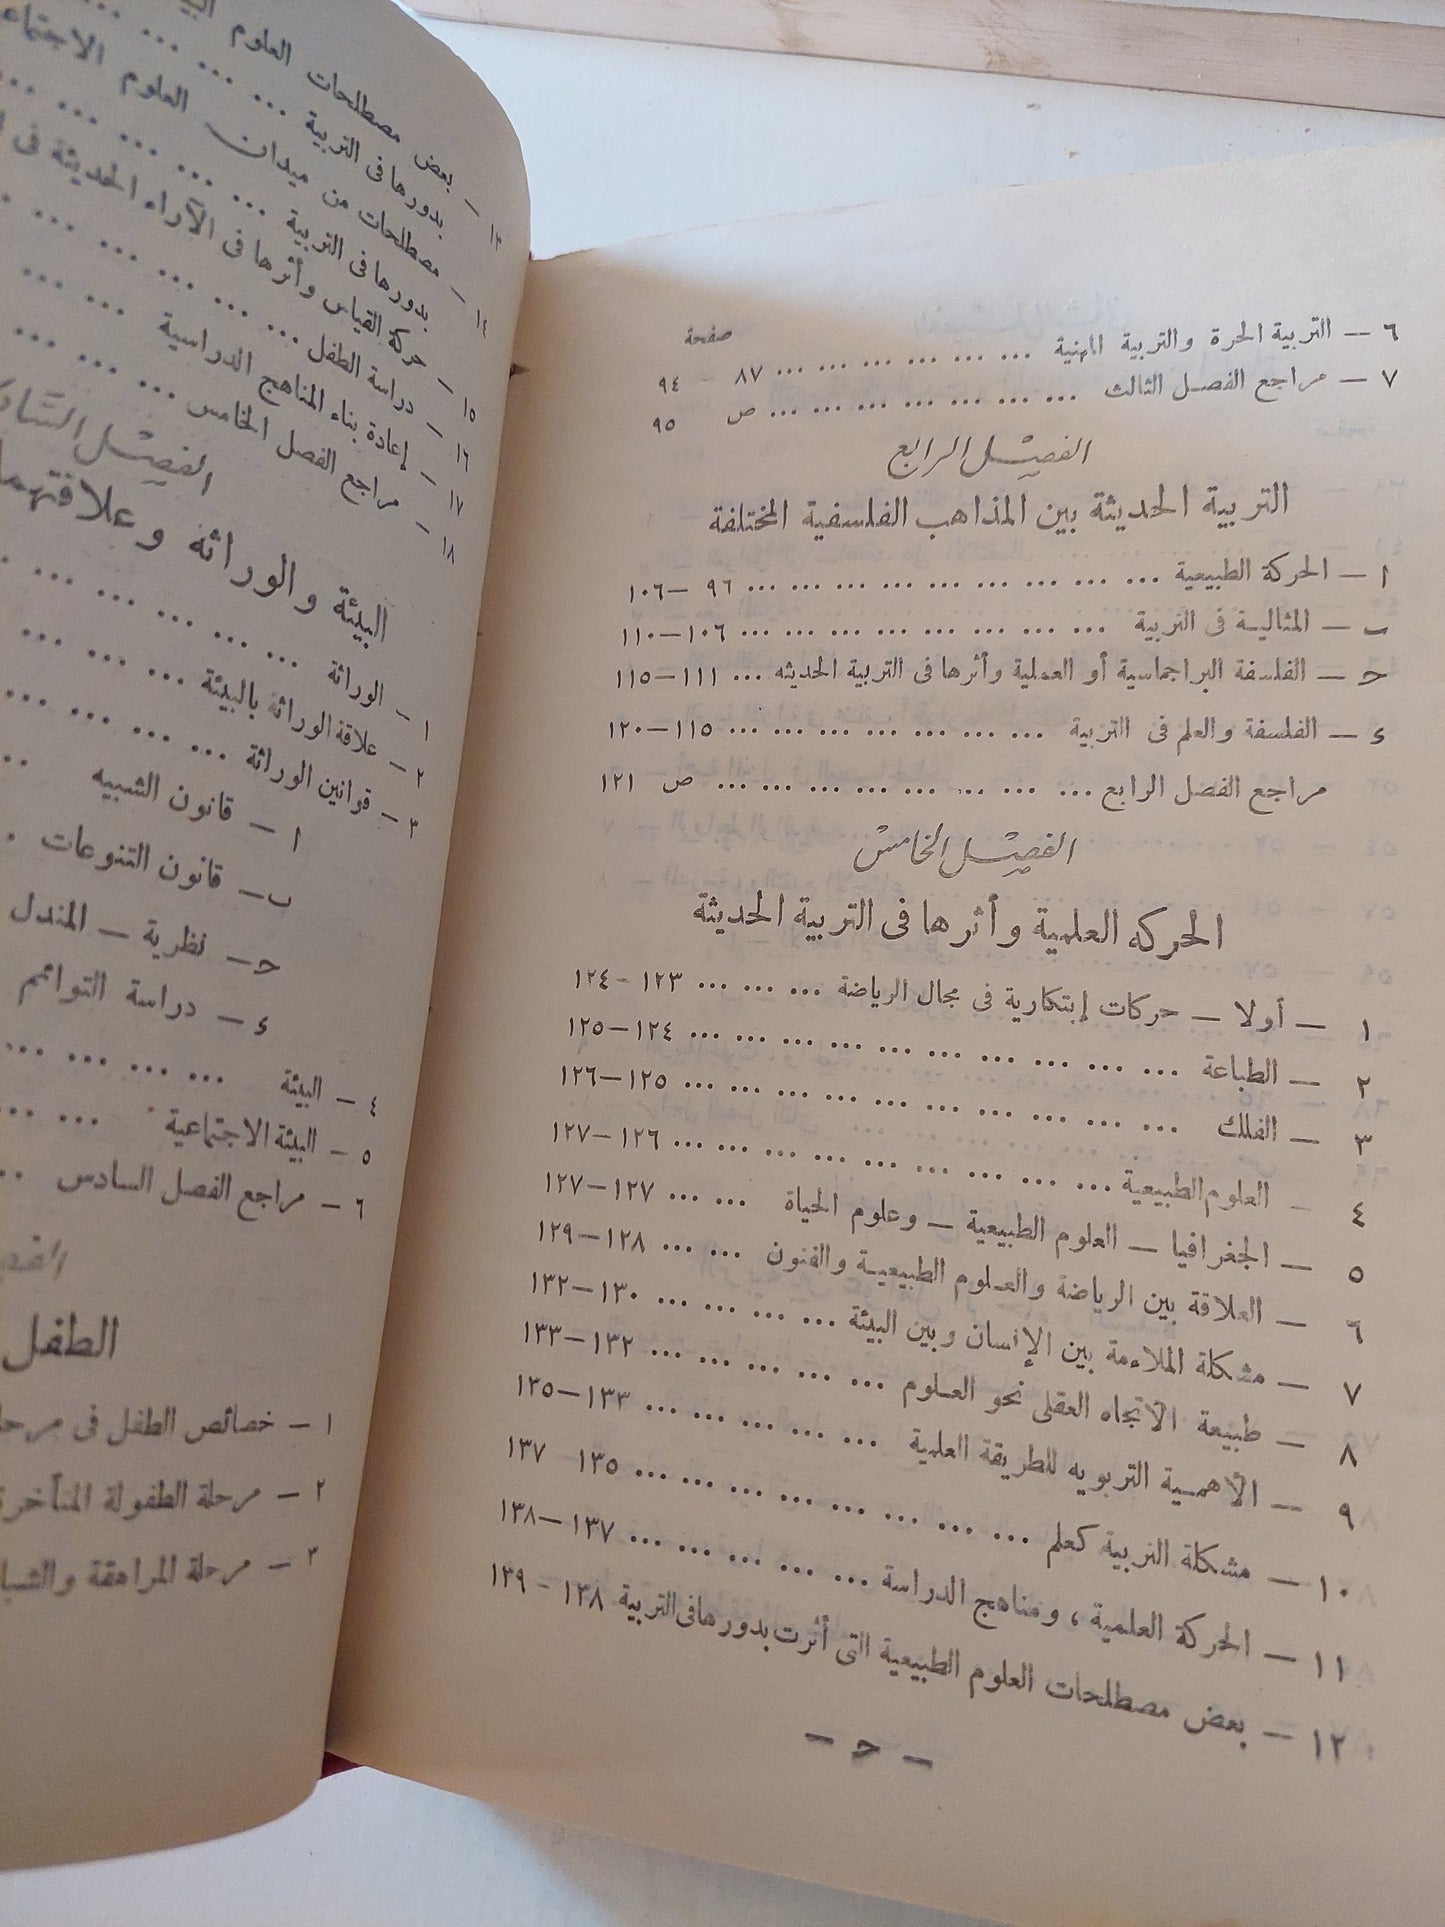 صفحة
٦ — التربية الحرة والتربية المهنية ... ... ... ... ... ... ٨٧ - ٩٤
٧ — مراجع الفصل الثالث ... ... ... ... ... ... ... ص ٩٥
الفصل الرابع
التربية الحديثة بين المذاهب الفلسفية المختلفة
ا — الحركة الطبيعية ... ... ... ... ... ... ... ... ... ... ٩٦ —١٠٦
ب — المثالية فى التربية ... ... ... ... ... ... ... ... ... ١٠٦—١١٠
ح — الفلسفة البراجماسية أو العملية وأثرها فى التربية الحديثه ... ١١١—١١٥
ء — الفلسفة والعلم فى التربية ... ... ... ... ... ... ... ... ١١٥—١٢٠
مراجع الفصل الرابع ... ... ... ... ... ... ... ... ... ص ١٢١
الفصل الخامس
الحركه العلمية وأثرها فى التربية الحديثة
١ — أولا — حركات إبتكارية فى مجال الرياضة ... ... ... ١٢٣ - ١٢٤
٢ — الطباعة ... ... ... ... ... ... ... ... ... ... ... ١٢٤—١٢٥
٣ — الفلك ... ... ... ... ... ... ... ... ... ... ... ١٢٥—١٢٦
٤ — العلوم الطبيعية ... ... ... ... ... ... ... ... ... ... ١٢٦—١٢٧
٥ — الجغرافيا — العلوم الطبيعية — وعلوم الحياة ... ... ... ١٢٧—١٢٧
٦ — العلاقة بين الرياضة والعلوم الطبيعية والفنون ... ... ... ١٢٨—١٢٩
٧ — مشكلة الملاءمة بين الإنسان وبين البيئة ... ... ... ... ١٣٠—١٣٢
٨ — طبيعة الاتجاه العقلى نحو العلوم ... ... ... ... ... ... ١٣٢—١٣٣
٩ — الأهمية التربويه للطريقة العلمية ... ... ... ... ... ... ١٣٣—١٣٥
١٠ — مشكلة التربية كعلم ... ... ... ... ... ... ... ... ... ١٣٥ ١٣٧
١١ — الحركة العلمية ، ومناهج الدراسة ... ... ... ... ... ... ١٣٧—١٣٨
١٢ — بعض مصطلحات العلوم الطبيعية التى أثرت بدورها فى التربية ١٣٨ - ١٣٩
— ح —
١٣ — بعض مصطلحات العلوم
بدورها فى التربية ... ... ... ...
١٤ — مصطلحات من ميدان العلوم الاجتما
بدورها فى التربية ... ... ... ... ...
١٥ — حركة القياس وأثرها فى الآراء الحديثة فى
١٦ — دراسة الطفل ... ... ... ... ... ...
١٧ — إعادة بناء المناهج الدراسية ... ... ...
١٨ — مراجع الفصل الخامس ... ... ... ...
الفصل الساد
البيئة والوراثه وعلاقتهما
١ — الوراثة ... ... ... ... ... ...
٢ — علاقة الوراثة بالبيئة ... ... ... ...
٣ — قوانين الوراثة ... ... ... ... ...
ا — قانون الشبيه ..
ب — قانون التنوعات .
ح — نظرية — المندل
ء — دراسة التوائم
٤ — البيئة ... ... ... ... ...
٥ — البيئة الاجتماعية ... ... ...
٦ — مراجع الفصل السادس ..
الطفل
١ — خصائص الطفل فى مرحلة
٢ — مرحلة الطفولة المتأخرة
٣ — مرحلة المراهقة والشبا